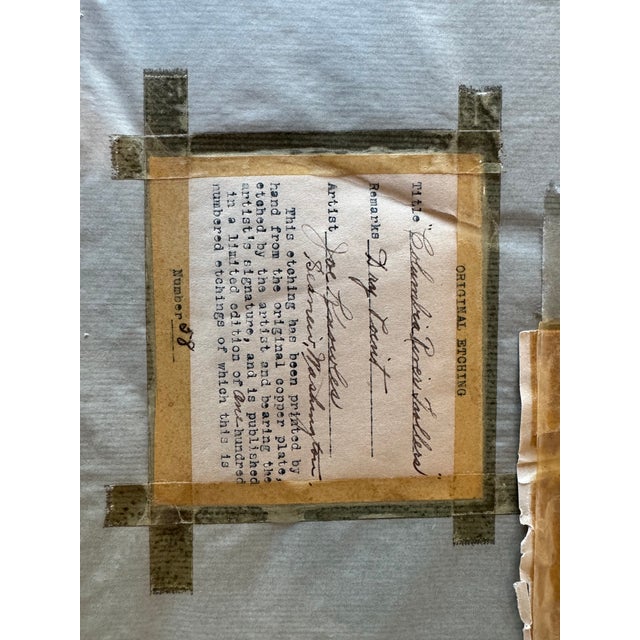 ORIGINAL ETCHING
Title "Columbia River Trollers"
Remarks Dry Point
Artist Joe Knowles
Seaview, Washington.
This etching has been printed by
hand from the original copper plate,
etched by the artist and bearing the
artist's signature, and is published
in a limited edition of one hundred
numbered etchings of which this is
Number 58